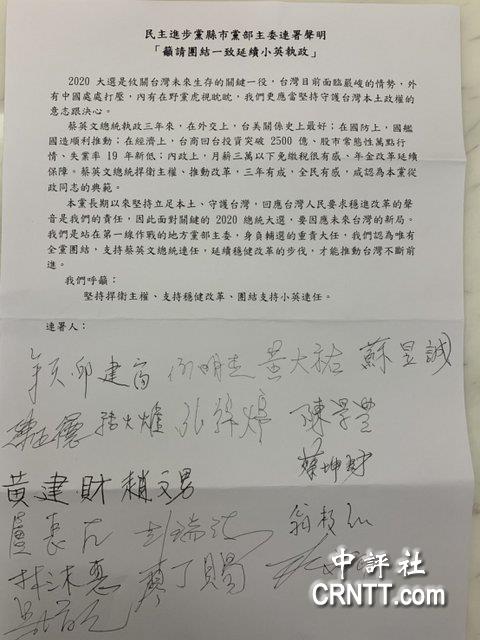 民主進步黨縣市黨部主委連署聲明
「籲請團結一致延續小英執政」
2020 大選是攸關台灣未來生存的關鍵一役，台灣目前面臨嚴峻的情勢，外
有中國處處打壓，內有在野黨虎視眈眈，我們更應當堅持守護台灣本土政權的
意志跟決心。
蔡英文總統執政三年來，在外交上，台美關係史上最好；在國防上，國艦
國造順利推動；在經濟上，台商回台投資突破 2500 億、股市常態性萬點行
情、失業率 19 年新低；內政上，月薪三萬以下免繳稅很有感、年金改革延續
保障。蔡英文總統捍衛主權、推動改革，三年有成，全民有感，咸認為本黨從
政同志的典範。
本黨長期以來堅持立足本土、守護台灣，回應台灣人民要求穩進改革的聲
音是我們的責任，因此面對關鍵的 2020 總統大選，要因應未來台灣的新局。
我們是站在第一線作戰的地方黨部主委，身負輔選的重責大任，我們認為唯有
全黨團結，支持蔡英文總統連任，延續穩健改革的步伐，才能推動台灣不斷前
進。
我們呼籲：
堅持捍衛主權、支持穩健改革、團結支持小英連任。
連署人：
邱建富 黃大祐 蘇昱誠
陳學豐
蔡坤財
黃建財 趙文男
彭瑞
蔡丁賜
中評社
CRNTT.com